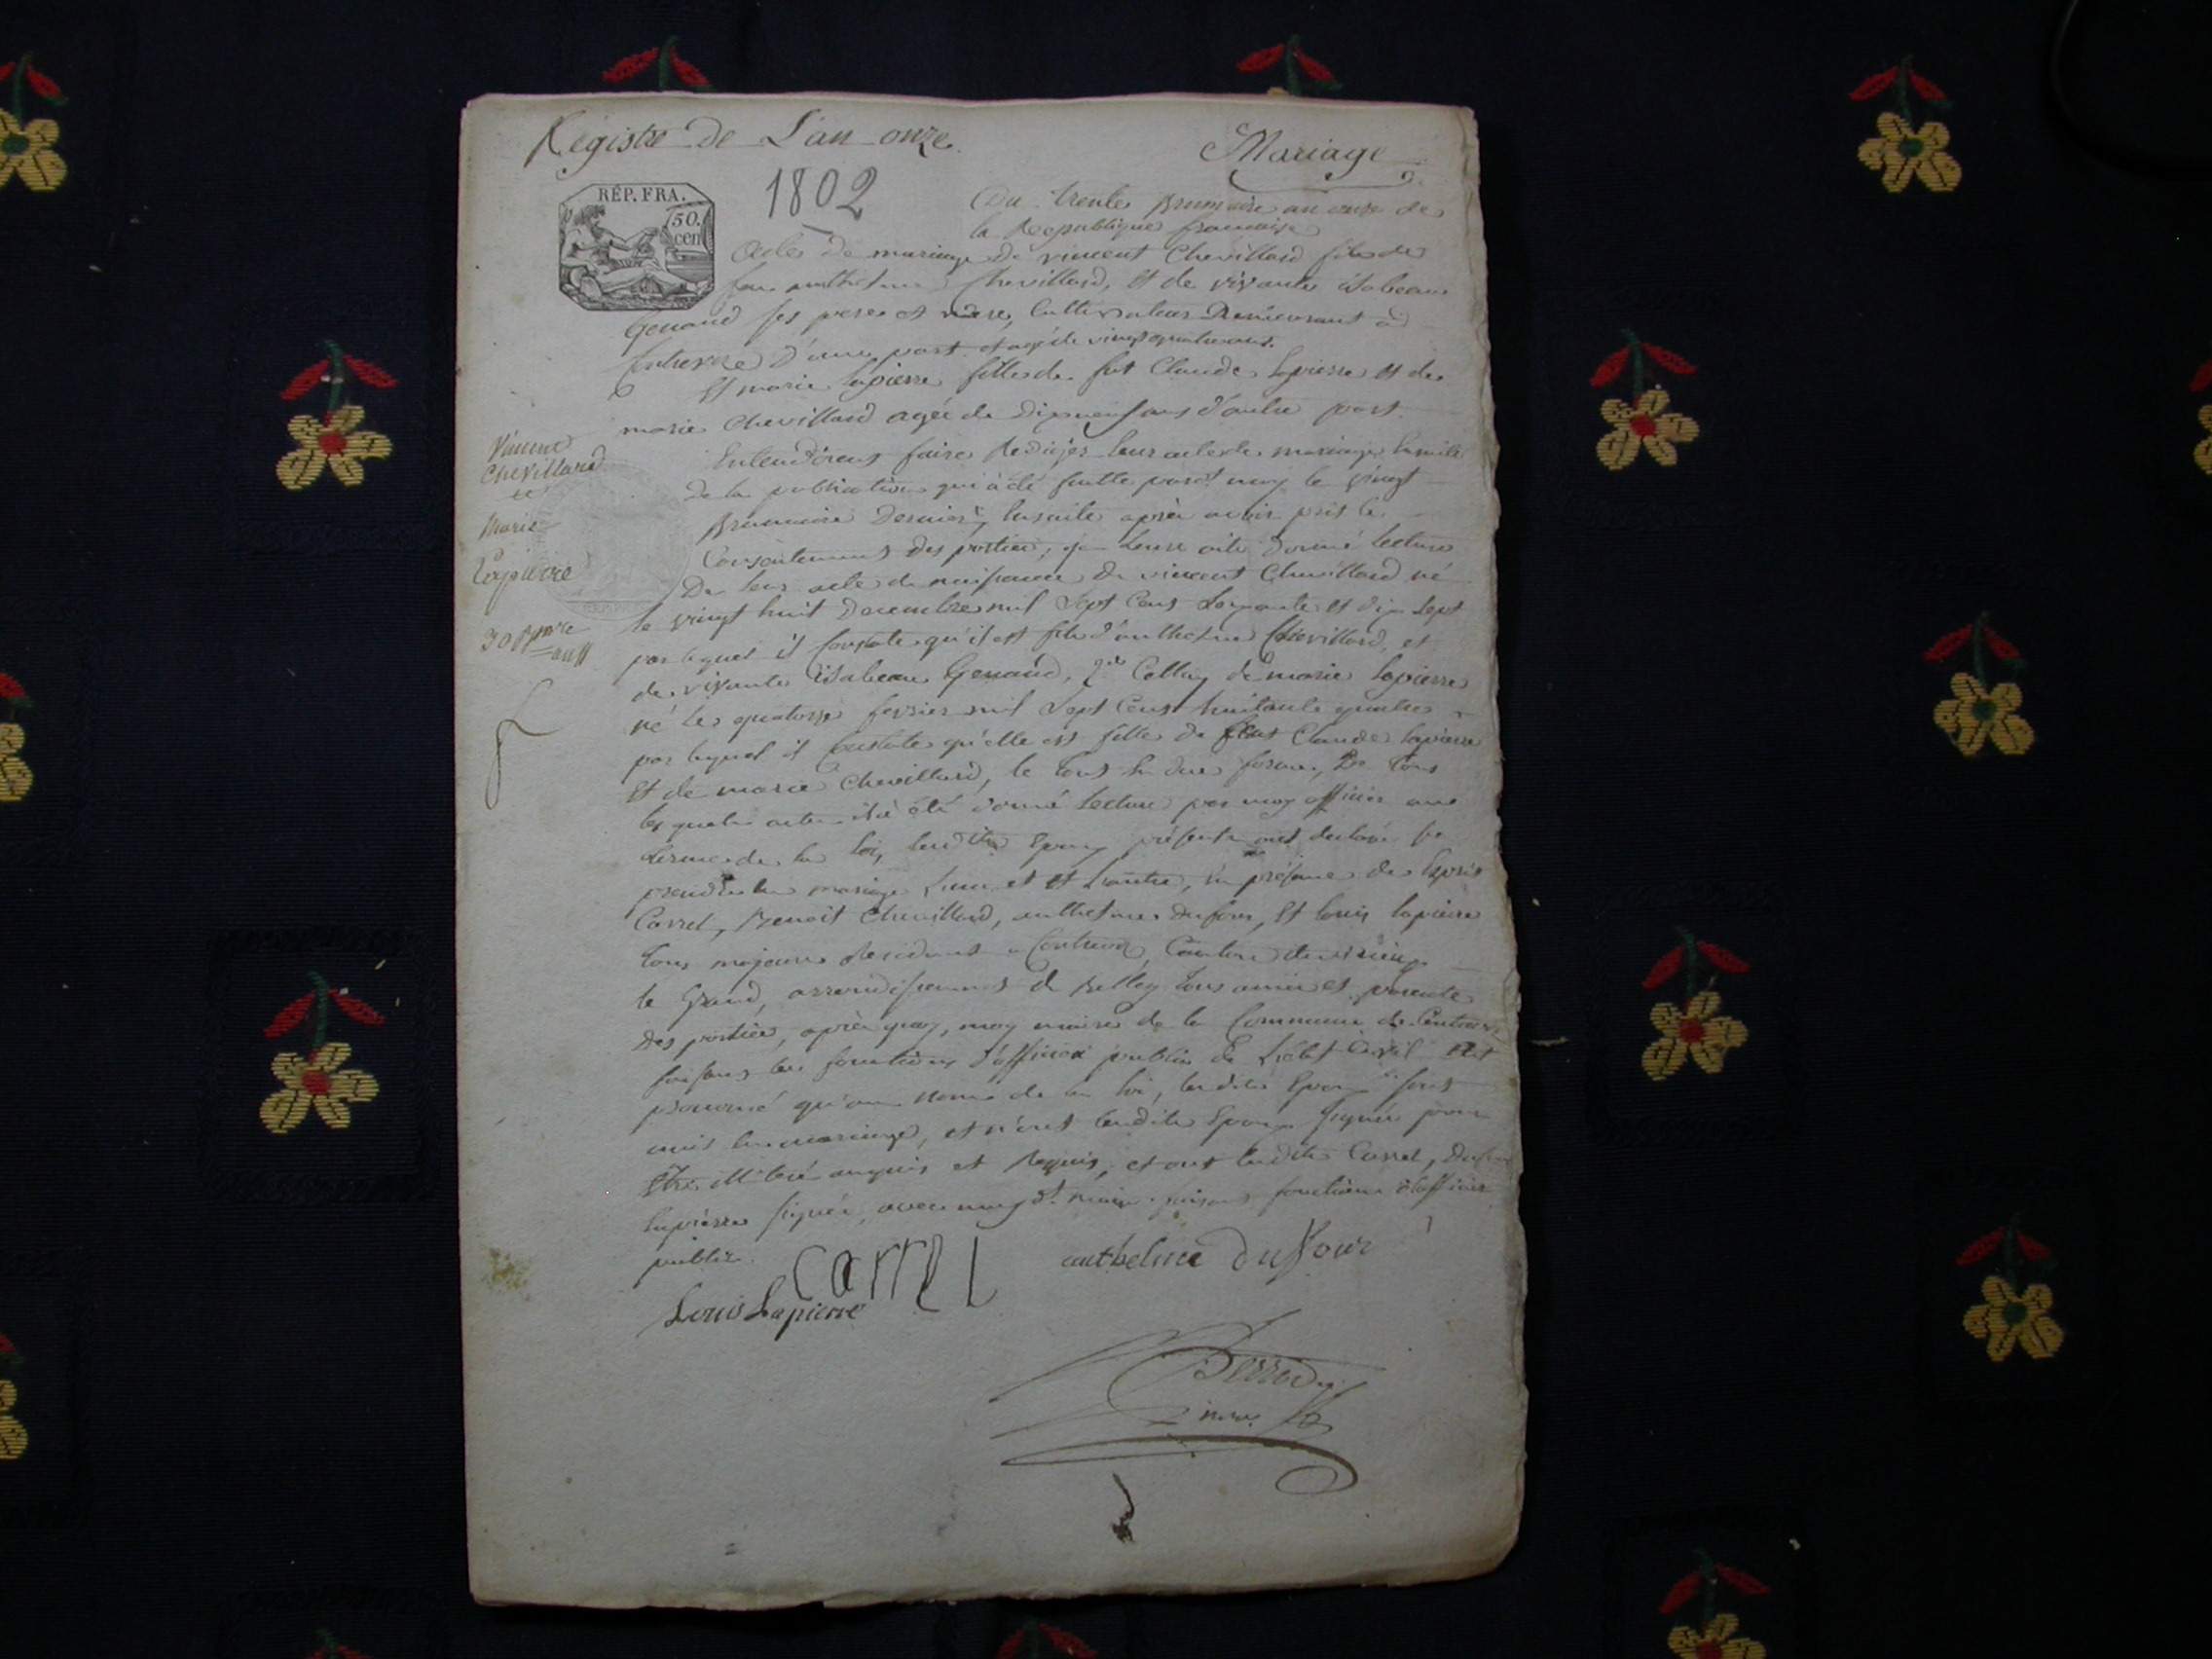 Registre de L'an onze.
Mariage
RÉP. FRA.
50.
cen
1802
Du trente Brumaire an onze de
la Republique francaise
Acte de mariage de vincent Chevillard fils de
feu anthelme Chevillard, et de vivante isabeau
Genaud ses pere et mere, Cultivateur Demeurant à
Contrevoz D'une part et agé de vingt quatre ans.
Et marie lapierre fille de fut Claude lapierre et de
marie Chevillard agée de dix neuf ans d'autre part.
Vincent
Chevillard
et
Marie
Lapierre
30 Bmre
an 11
Entendirent faire Rediger leur acte de mariage ensuite
de la publication qui à été faitte par moy le vingt
Brumaire Dernier, ensuite après avoir pris le
Consentement des parties, je leur ai donné lecture
De leur acte de naissance de vincent Chevillard né
le vingt huit Decembre mil Sept Cens Soixante et dix Sept
par lequel il Constate qu'il est fils d'anthelme Chevillard, et
de vivante isabeau Genaud, 2 Celluy de marie lapierre
né le quatorze fevrier mil Sept Cens huitante quatre
par lequel il Constate qu'elle est fille de feut Claude lapierre
Et de marie Chevillard, le tout en due forme, De tous
les quels actes il à été donné lecture par moy officier aux
terme de la loi, lesdits Epoux présents ont declaré se
prendre en mariage l'un et et l'autre, en présence de
Carrel, Benoit Chevillard, anthelme dufour, et louis lapierre
tous majeurs Residant a Contrevoz, Canton de virieux
le Grand, arrondissement de Belley tous amis et parents
des parties, après quoy, moy maire de la Commune de Contrevoz
faisant les fonctions d'officier public de L'état Civil ait
prononcé qu'au nom de la loi, lesdits Epoux sont
unis en mariage, et n'ont lesdits Epoux signés pour
Etre illitéré enquis et Requis, et ont lesdits Carrel, dufour
lapierre signés, avec moy dt. maire faisant fonctions d'officier
public.
carrel
anthelme dufour
Louis Lapierre